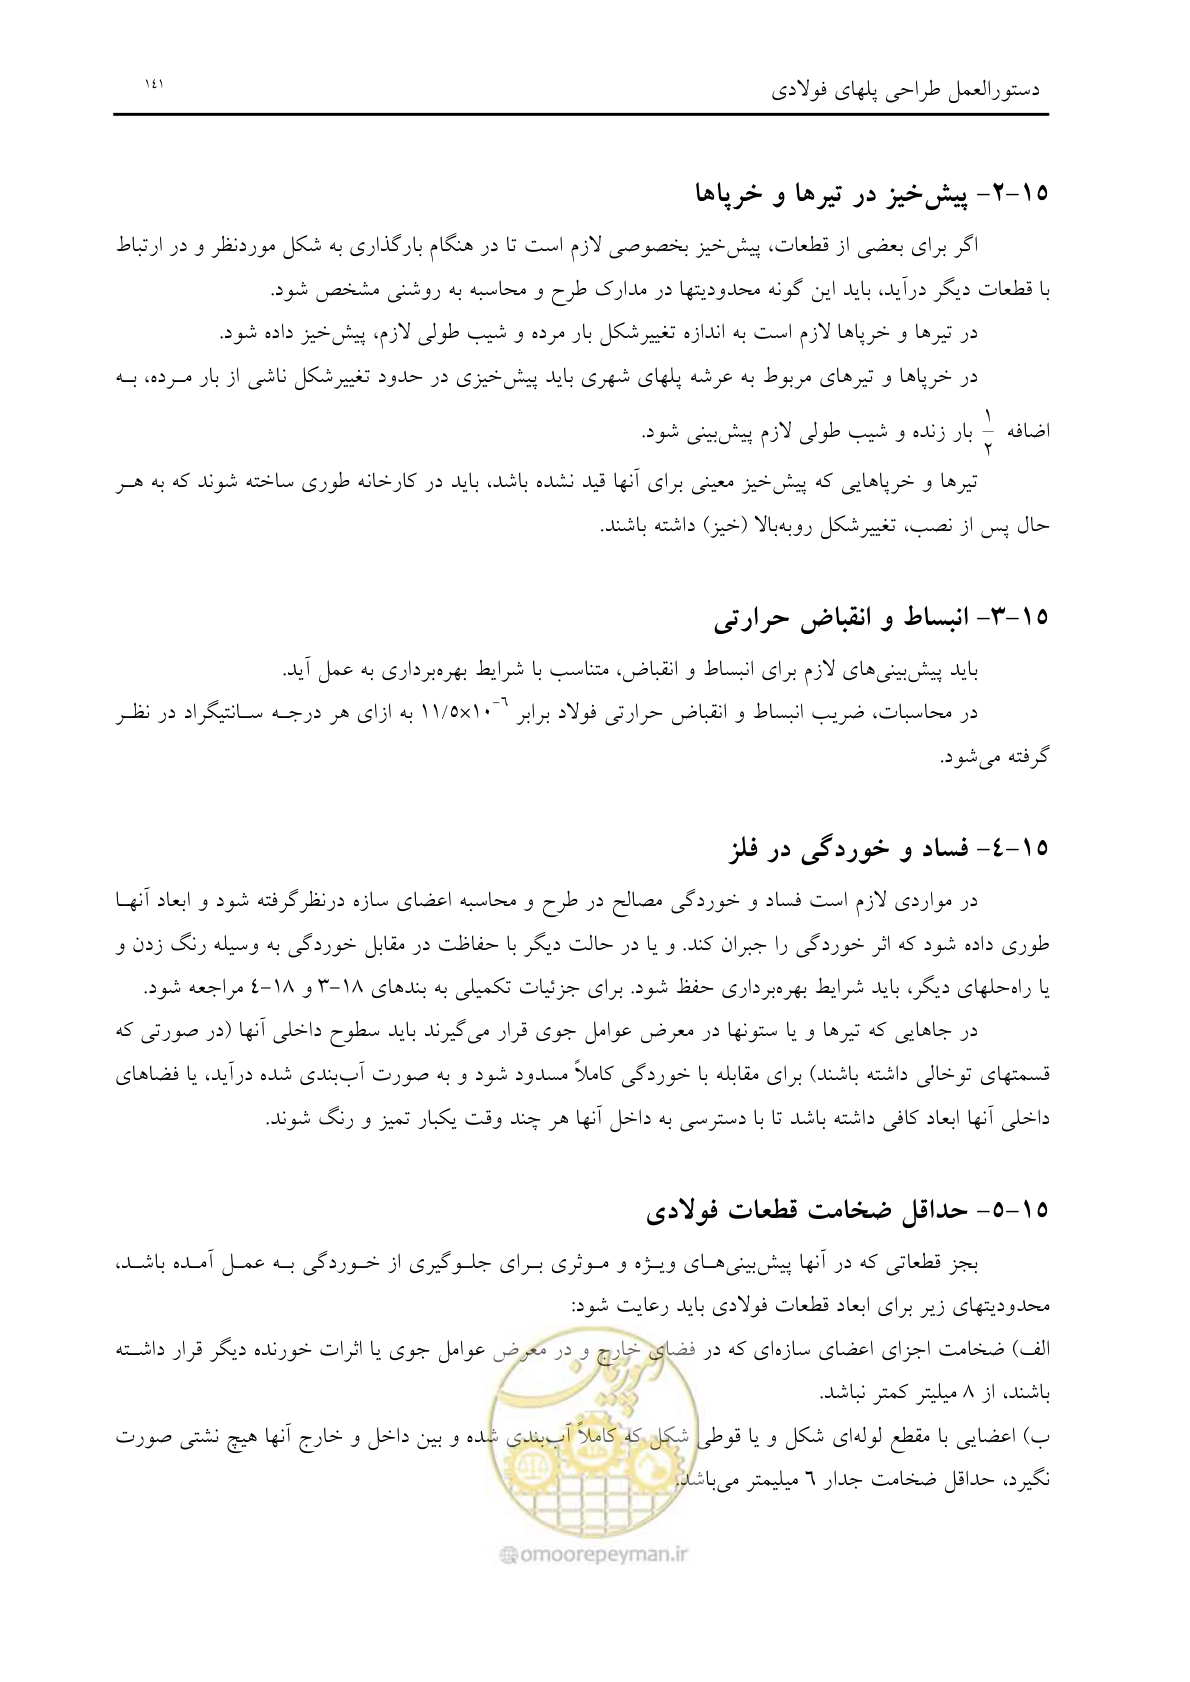 دستورالعمل طراحی پلهای فولادی
۱٤۱
۱۵-۲- پیش‌خیز در تیرها و خرپاها
اگر برای بعضی از قطعات، پیش‌خیز بخصوصی لازم است تا در هنگام بارگذاری به شکل موردنظر و در ارتباط
با قطعات دیگر درآید، باید این گونه محدودیتها در مدارک طرح و محاسبه به روشنی مشخص شود.
در تیرها و خرپاها لازم است به اندازه تغییرشکل بار مرده و شیب طولی لازم، پیش‌خیز داده شود.
در خرپاها و تیرهای مربوط به عرشه پلهای شهری باید پیش‌خیزی در حدود تغییرشکل ناشی از بار مـرده، بـه
اضافه ۱/۲ بار زنده و شیب طولی لازم پیش‌بینی شود.
تیرها و خرپاهایی که پیش‌خیز معینی برای آنها قید نشده باشد، باید در کارخانه طوری ساخته شوند که به هـر
حال پس از نصب، تغییرشکل روبه‌بالا (خیز) داشته باشند.
۱۵-۳- انبساط و انقباض حرارتی
باید پیش‌بینی‌های لازم برای انبساط و انقباض، متناسب با شرایط بهره‌برداری به عمل آید.
در محاسبات، ضریب انبساط و انقباض حرارتی فولاد برابر ۱۱/۵×۱۰⁻⁶ به ازای هر درجـه سـانتیگراد در نظـر
گرفته می‌شود.
۱۵-٤- فساد و خوردگی در فلز
در مواردی لازم است فساد و خوردگی مصالح در طرح و محاسبه اعضای سازه درنظرگرفته شود و ابعاد آنهـا
طوری داده شود که اثر خوردگی را جبران کند. و یا در حالت دیگر با حفاظت در مقابل خوردگی به وسیله رنگ زدن و
یا راه‌حلهای دیگر، باید شرایط بهره‌برداری حفظ شود. برای جزئیات تکمیلی به بندهای ۱۸-۳ و ۱۸-٤ مراجعه شود.
در جاهایی که تیرها و یا ستونها در معرض عوامل جوی قرار می‌گیرند باید سطوح داخلی آنها (در صورتی که
قسمتهای توخالی داشته باشند) برای مقابله با خوردگی کاملاً مسدود شود و به صورت آب‌بندی شده درآید، یا فضاهای
داخلی آنها ابعاد کافی داشته باشد تا با دسترسی به داخل آنها هر چند وقت یکبار تمیز و رنگ شوند.
۱۵-۵- حداقل ضخامت قطعات فولادی
بجز قطعاتی که در آنها پیش‌بینی‌هـای ویـژه و مـوثری بـرای جلـوگیری از خـوردگی بـه عمـل آمـده باشـد،
محدودیتهای زیر برای ابعاد قطعات فولادی باید رعایت شود:
الف) ضخامت اجزای اعضای سازه‌ای که در فضای خارج و در معرض عوامل جوی یا اثرات خورنده دیگر قرار داشـته
باشند، از ۸ میلیتر کمتر نباشد.
ب) اعضایی با مقطع لوله‌ای شکل و یا قوطی شکل که کاملاً آب‌بندی شده و بین داخل و خارج آنها هیچ نشتی صورت
نگیرد، حداقل ضخامت جدار ٦ میلیمتر می‌باشد.
امور پیمان
@omoorepeyman.ir